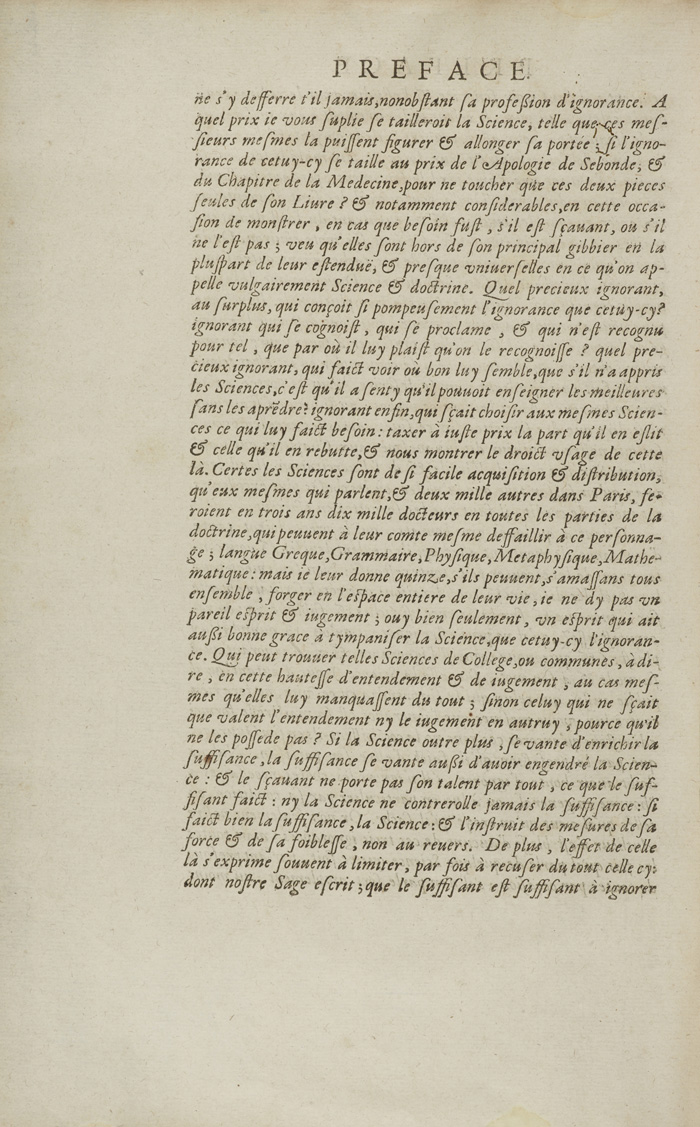 PREFACE.
ne s'y defferre t'il jamais, nonobſtant ſa profeßion d'ignorance. A
quel prix ie vous ſuplie ſe tailleroit la Science, telle que ces meſ-
ſieurs meſmes la puiſſent figurer & allonger ſa portée ; ſi l'igno-
rance de cetuy-cy ſe taille au prix de l'Apologie de Sebonde, &
du Chapitre de la Medecine, pour ne toucher que ces deux pieces
ſeules de ſon Liure ? & notamment conſiderables, en cette occa-
ſion de monſtrer, en cas que beſoin fuſt, s'il eſt ſçauant, ou s'il
ne l'eſt pas ; veu qu'elles ſont hors de ſon principal gibbier en la
pluſpart de leur eſtenduë, & preſque vniuerſelles en ce qu'on ap-
pelle vulgairement Science & doctrine. Quel precieux ignorant,
au ſurplus, qui conçoit ſi pompeuſement l'ignorance que cetuy-cy?
ignorant qui ſe cognoiſt, qui ſe proclame, & qui n'eſt recognu
pour tel, que par où il luy plaiſt qu'on le recognoiſſe ? quel pre-
cieux ignorant, qui faict voir où bon luy ſemble, que s'il n'a appris
les Sciences, c'eſt qu'il a ſenty qu'il pouuoit enſeigner les meilleures
ſans les aprẽdre? ignorant enfin, qui ſçait choiſir aux meſmes Scien-
ces ce qui luy faict beſoin : taxer à iuſte prix la part qu'il en eſlit
& celle qu'il en rebutte, & nous montrer le droict vſage de cette
là. Certes les Sciences ſont de ſi facile acquiſition & diſtribution,
qu'eux meſmes qui parlent, & deux mille autres dans Paris, fe-
roient en trois ans dix mille docteurs en toutes les parties de la
doctrine, qui peuuent à leur comte meſme deffaillir à ce perſonna-
ge ; langue Greque, Grammaire, Phyſique, Metaphyſique, Mathe-
matique : mais ie leur donne quinze, s'ils peuuent, s'amaſſans tous
enſemble, forger en l'eſpace entiere de leur vie, ie ne dy pas vn
pareil eſprit & iugement ; ouy bien ſeulement, vn eſprit qui ait
außi bonne grace à tympaniſer la Science, que cetuy-cy l'ignoran-
ce. Qui peut trouuer telles Sciences de College, ou communes, à di-
re, en cette hauteſſe d'entendement & de iugement, au cas meſ-
mes qu'elles luy manquaſſent du tout ; ſinon celuy qui ne ſçait
que valent l'entendement ny le iugement en autruy, pource qu'il
ne les poſſede pas ? Si la Science outre plus, ſe vante d'enrichir la
ſuffiſance, la ſuffiſance ſe vante außi d'auoir engendré la Scien-
ce : & le ſçauant ne porte pas ſon talent par tout, ce que le ſuf-
fiſant faict : ny la Science ne contrerolle jamais la ſuffiſance : ſi
faict bien la ſuffiſance, la Science : & l'inſtruit des meſures de ſa
force & de ſa foibleſſe, non au reuers. De plus, l'effet de celle
là s'exprime ſouuent à limiter, par fois à recuſer du tout celle cy:
dont noſtre Sage eſcrit ; que le ſuffiſant eſt ſuffiſant à ignorer